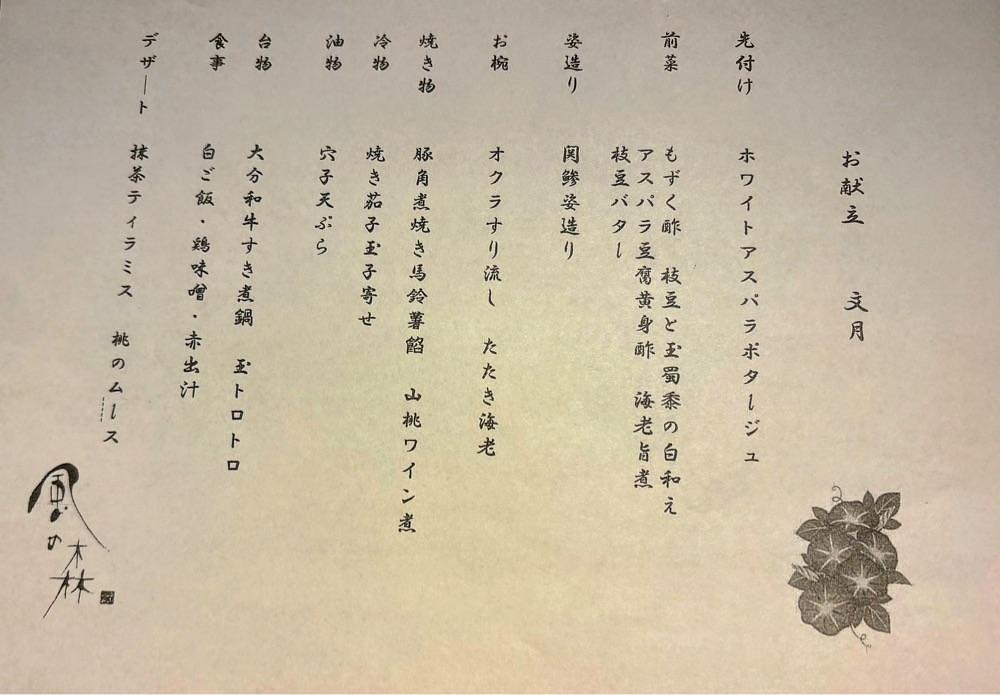 お献立　文月
先付け　ホワイトアスパラポタージュ
前菜　もずく酢　枝豆と玉蜀黍の白和え
アスパラ豆腐黄身酢　海老旨煮
枝豆バター
姿造り　関鯵姿造り
お椀　オクラすり流し　たたき海老
焼き物　豚角煮焼き馬鈴薯餡　山桃ワイン煮
冷物　焼き茄子玉子寄せ
油物　穴子天ぷら
台物　大分和牛すき煮鍋　玉トロトロ
食事　白ご飯・鶏味噌・赤出汁
デザート　抹茶ティラミス　桃のムース
風の森